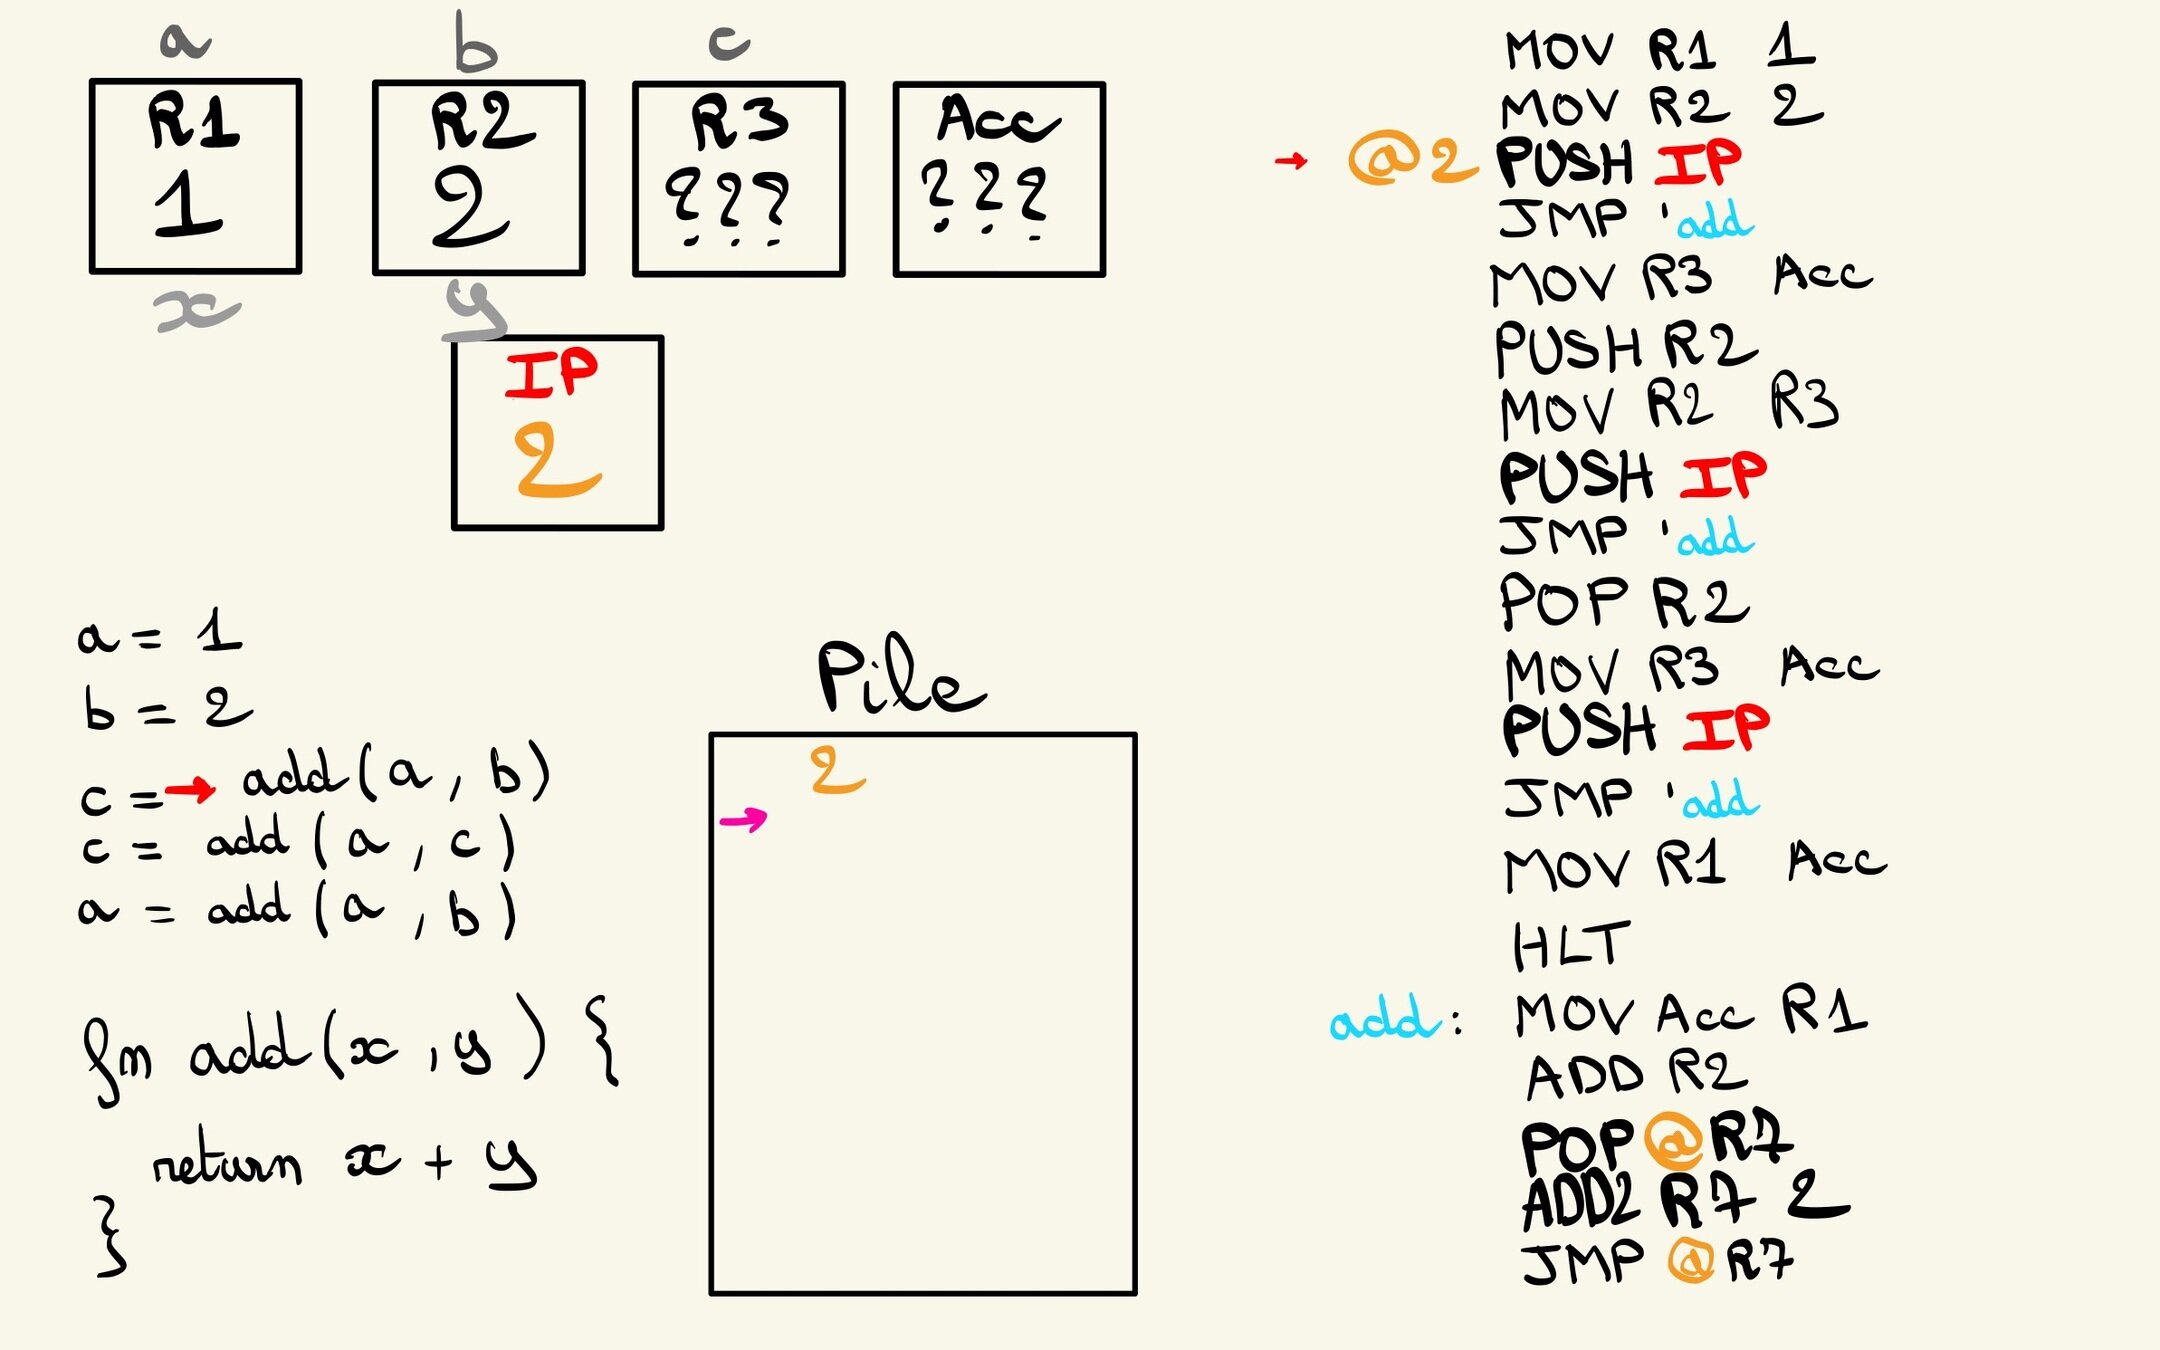 a b c
R1 R2 R3 Acc
1 2 ??? ???
x y
IP
2
a = 1
b = 2
c = → add(a, b)
c = add(a, c)
a = add(a, b)
fn add(x, y) {
return x + y
}
Pile
2
→
MOV R1 1
MOV R2 2
→ @2 PUSH IP
JMP 'add
MOV R3 Acc
PUSH R2
MOV R2 R3
PUSH IP
JMP 'add
POP R2
MOV R3 Acc
PUSH IP
JMP 'add
MOV R1 Acc
HLT
add: MOV Acc R1
ADD R2
POP @R7
ADD2 R7 2
JMP @R7